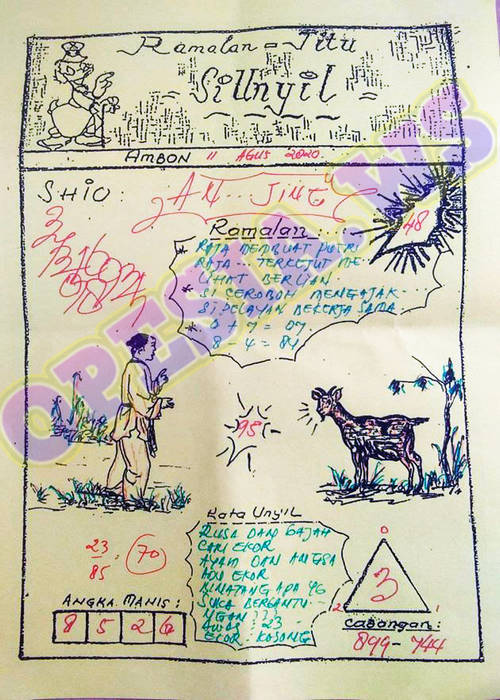 Ramalan = Jitu
Si Unyil
AMBON 11 AGUS 2020
SHIO:
48
Ramalan...:
* RAJA MEMBUAT PUTRI
RAJA - TERKEJUT ME -
LIHAT BERLIAN.
* SI CEROBOH MENGAJAK
SI PELAYAN BEKERJA SAMA.
* 0 + 7 = 07
8 - 4 = 84
OPESIA.WS
98
Kata Unyil
RUSA DAN GAJAH
CARI EKOR
AYAM DAN ANGSA
ADU EKOR
BINATANG APA YG
SUKA BERGANTU-
NGAN ??
AWAS : 23
EKOR : KOSONG
23
85
= 70
0
3
2
1
ANGKA MANIS :
8 5 2 6
CABANGAN:
899 - 744